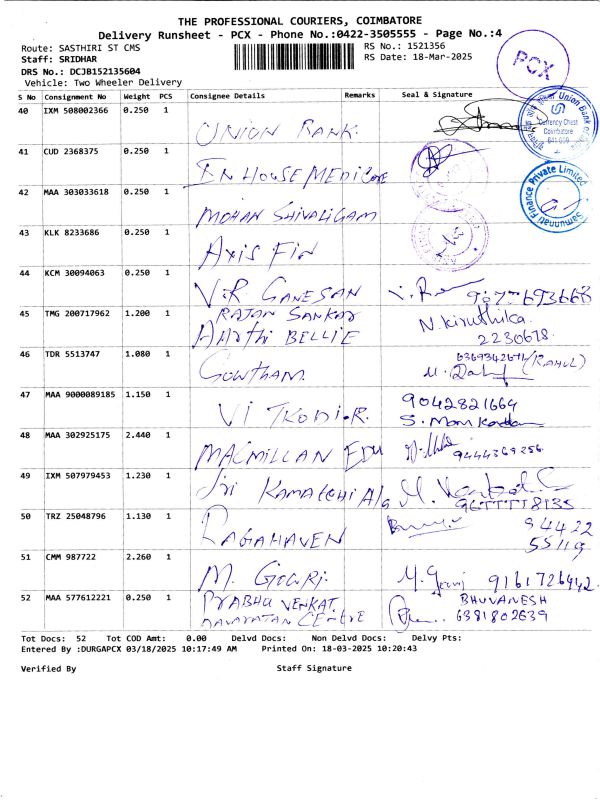 THE PROFESSIONAL COURIERS, COIMBATORE
Delivery Runsheet - PCX - Phone No.:0422-3505555 - Page No.:4
Route: SASTHIRI ST CMS
RS No.: 1521356
Staff: SRIDHAR
RS Date: 18-Mar-2025
DRS No.: DCJB152135604
Vehicle: Two Wheeler Delivery
PCX
S No Consignment No Weight PCS Consignee Details Remarks Seal & Signature
40 IXM 508002366 0.250 1
UNION BANK.
Union Bank
Currency Chest
Coimbatore
641 009
41 CUD 2368375 0.250 1
INHOUSE MEDICARE
42 MAA 303033618 0.250 1
MOHAN SHIVALIGAM
Finance Private Limited
Samunnati
43 KLK 8233686 0.250 1
AXIS FIN
44 KCM 30094063 0.250 1
V.R GANESAN
45 TMG 200717962 1.200 1
RAJAN SANKAR
AARTHI BELLIE
N. Kiruthika.
2230678.
46 TDR 5513747 1.080 1
GOWTHAM.
(RAHUL)
47 MAA 9000089185 1.150 1
9042821664
48 MAA 302925175 2.440 1
MACMILLAN EDU
9444369256.
49 IXM 507979453 1.230 1
Sri KAMATCHI
50 TRZ 25048796 1.130 1
RAGAHAVEN
94422
55119
51 CMM 987722 2.260 1
M. GOWRI.
M. Gowri 9161726942.
52 MAA 577612221 0.250 1
PRABHU VENKAT.
NARAYANAN CENTRE
BHUVANESH
6381802639
Tot Docs: 52 Tot COD Amt: 0.00 Delvd Docs: Non Delvd Docs: Delvy Pts:
Entered By :DURGAPCX 03/18/2025 10:17:49 AM Printed On: 18-03-2025 10:20:43
Verified By Staff Signature